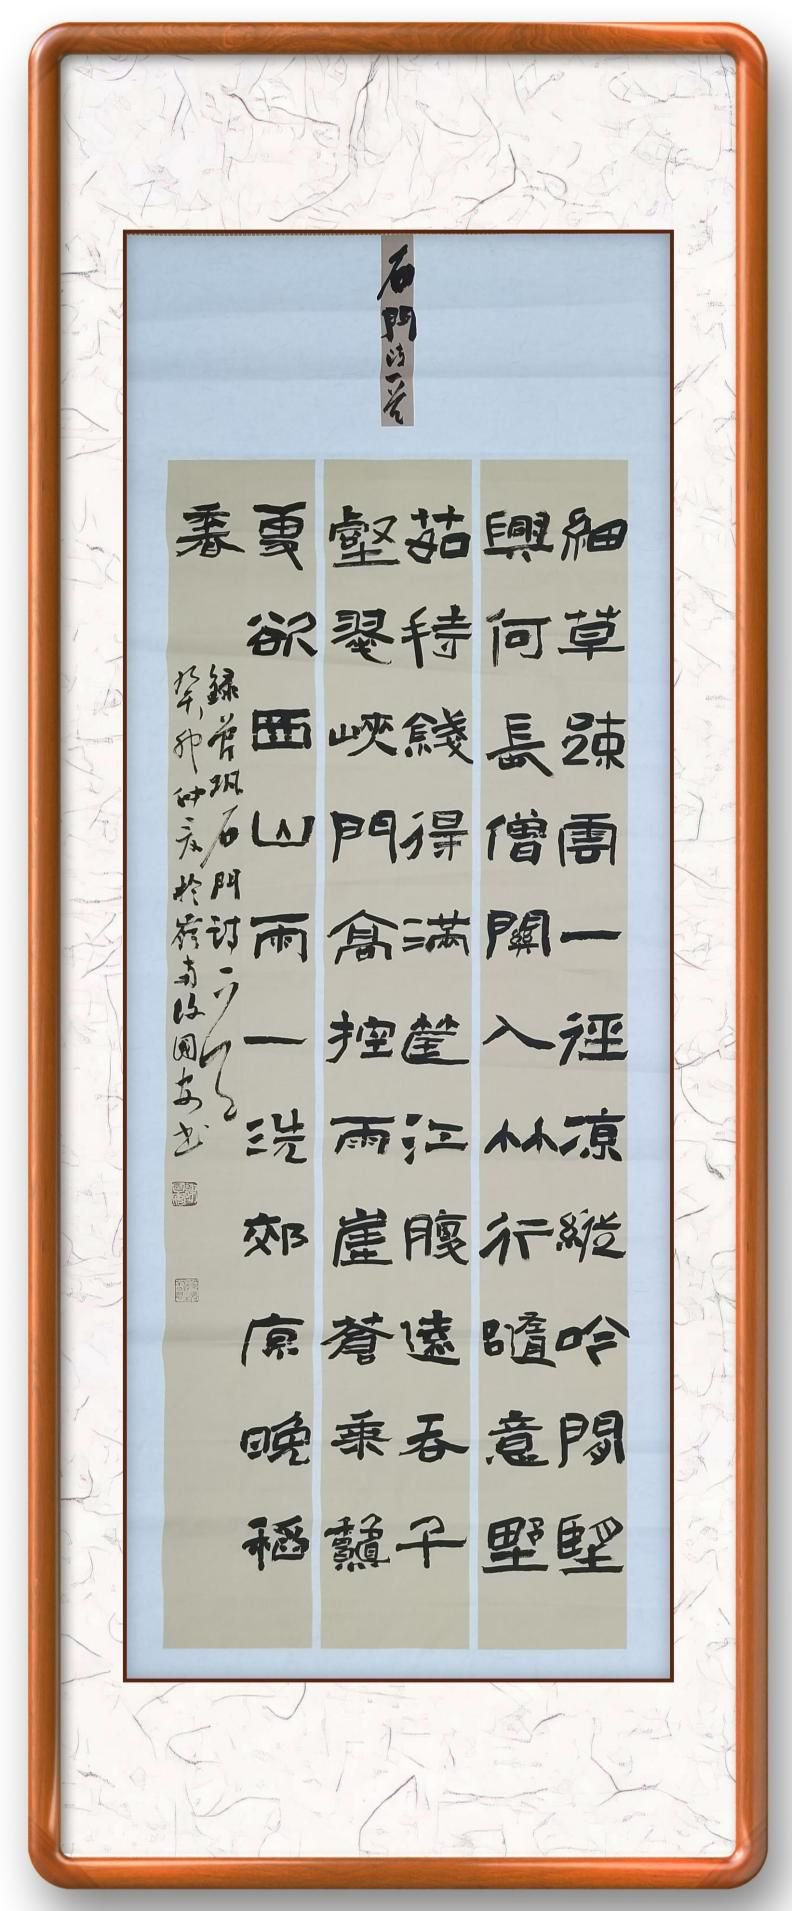 石門詩一首
細草踈雲一徑涼縱吟閒望
興何長僧關入竹行隨意野
茹持錢得滿筐江腹遠吞千
壑翠峽門高控兩崖蒼乘
更欲西山雨一洗郊原晚稻
香
錄曾巩石門詩一首
癸卯仲夏於嶺南國安書